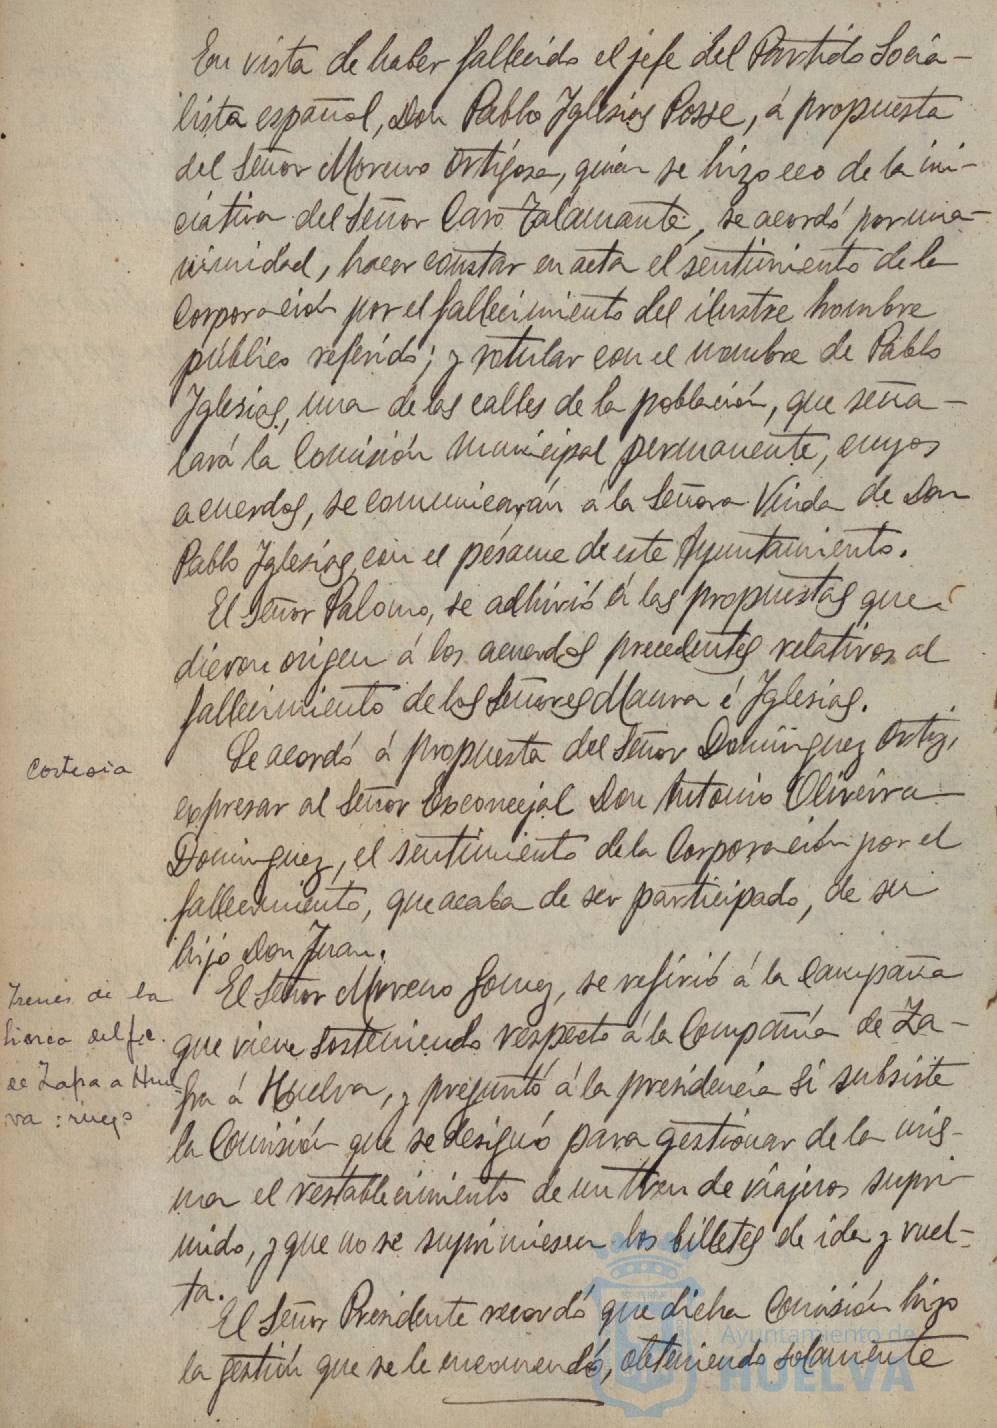 En vista de haber fallecido el jefe del Partido Socia-
lista español, Don Pablo Iglesias Posse, á propuesta
del Señor Moreno Ortigosa, quién se hizo eco de la ini-
ciativa del Señor Caro Talamante, se acordó por una-
nimidad, hacer constar en acta el sentimiento de la
Corporación por el fallecimiento del ilustre hombre
público referido; y rotular con el nombre de Pablo
Iglesias, una de las calles de la población, que seña-
lará la Comisión municipal permanente, cuyos
acuerdos, se comunicarán á la Señora Viuda de Don
Pablo Iglesias, con el pésame de este Ayuntamiento.
El Señor Palomo, se adhirió á las propuestas que
dieron origen á los acuerdos precedentes relativos al
fallecimiento de los Señores Maura é Iglesias.
Cortesia
Se acordó á propuesta del Señor Domínguez Ortiz,
expresar al Señor Exconcejal Don Antonio Oliveira
Domínguez, el sentimiento de la Corporación por el
fallecimiento, que acaba de ser participado, de su
hijo Don Juan.
Trenes de la
linea del f.c.
de Zafra a Huel-
va: ruego
El Señor Moreno Gomez, se refirió á la Campaña
que viene sosteniendo respecto á la Compañía de Za-
fra á Huelva, y preguntó á la presidencia si subsiste
la Comisión que se designó para gestionar de la mis-
ma el restablecimiento de un tren de viajeros supri-
mido, y que no se suprimiesen los billetes de ida y vuel-
ta.
El Señor Presidente recordó que dicha Comisión hizo
la gestión que se le encomendó, obteniendo solamente
Ayuntamiento de
HUELVA